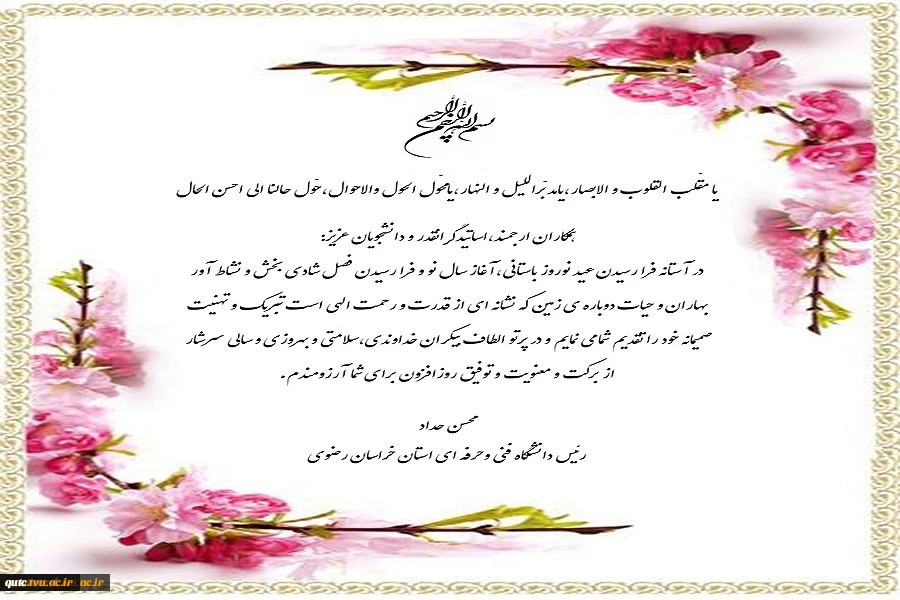 بسم الله الرحمن الرحیم
یا مقلّب القلوب و الابصار،یامدبّرالليل و النهار،یامحوّل الحول والاحوال،حوّل حالنا الی احسن الحال
همکاران ارجمند،اساتیدگرانقدر و دانشجویان عزیز:
در آستانه فرا رسیدن عید نوروز باستانی،آغاز سال نو و فرا رسیدن فصل شادی بخش و نشاط آور
بهاران و حیات دوباره ی زمین که نشانه ای از قدرت و رحمت الهی است تبریک و تهنیت
صمیمانه خود را تقدیم شما می نمایم و در پرتو الطاف بیکران خداوندی،سلامتی و بهروزی و سالی سرشار
از برکت و معنویت و توفیق روز افزون برای شما آرزومندم.
محسن حداد
رئیس دانشگاه فنی و حرفه ای استان خراسان رضوی